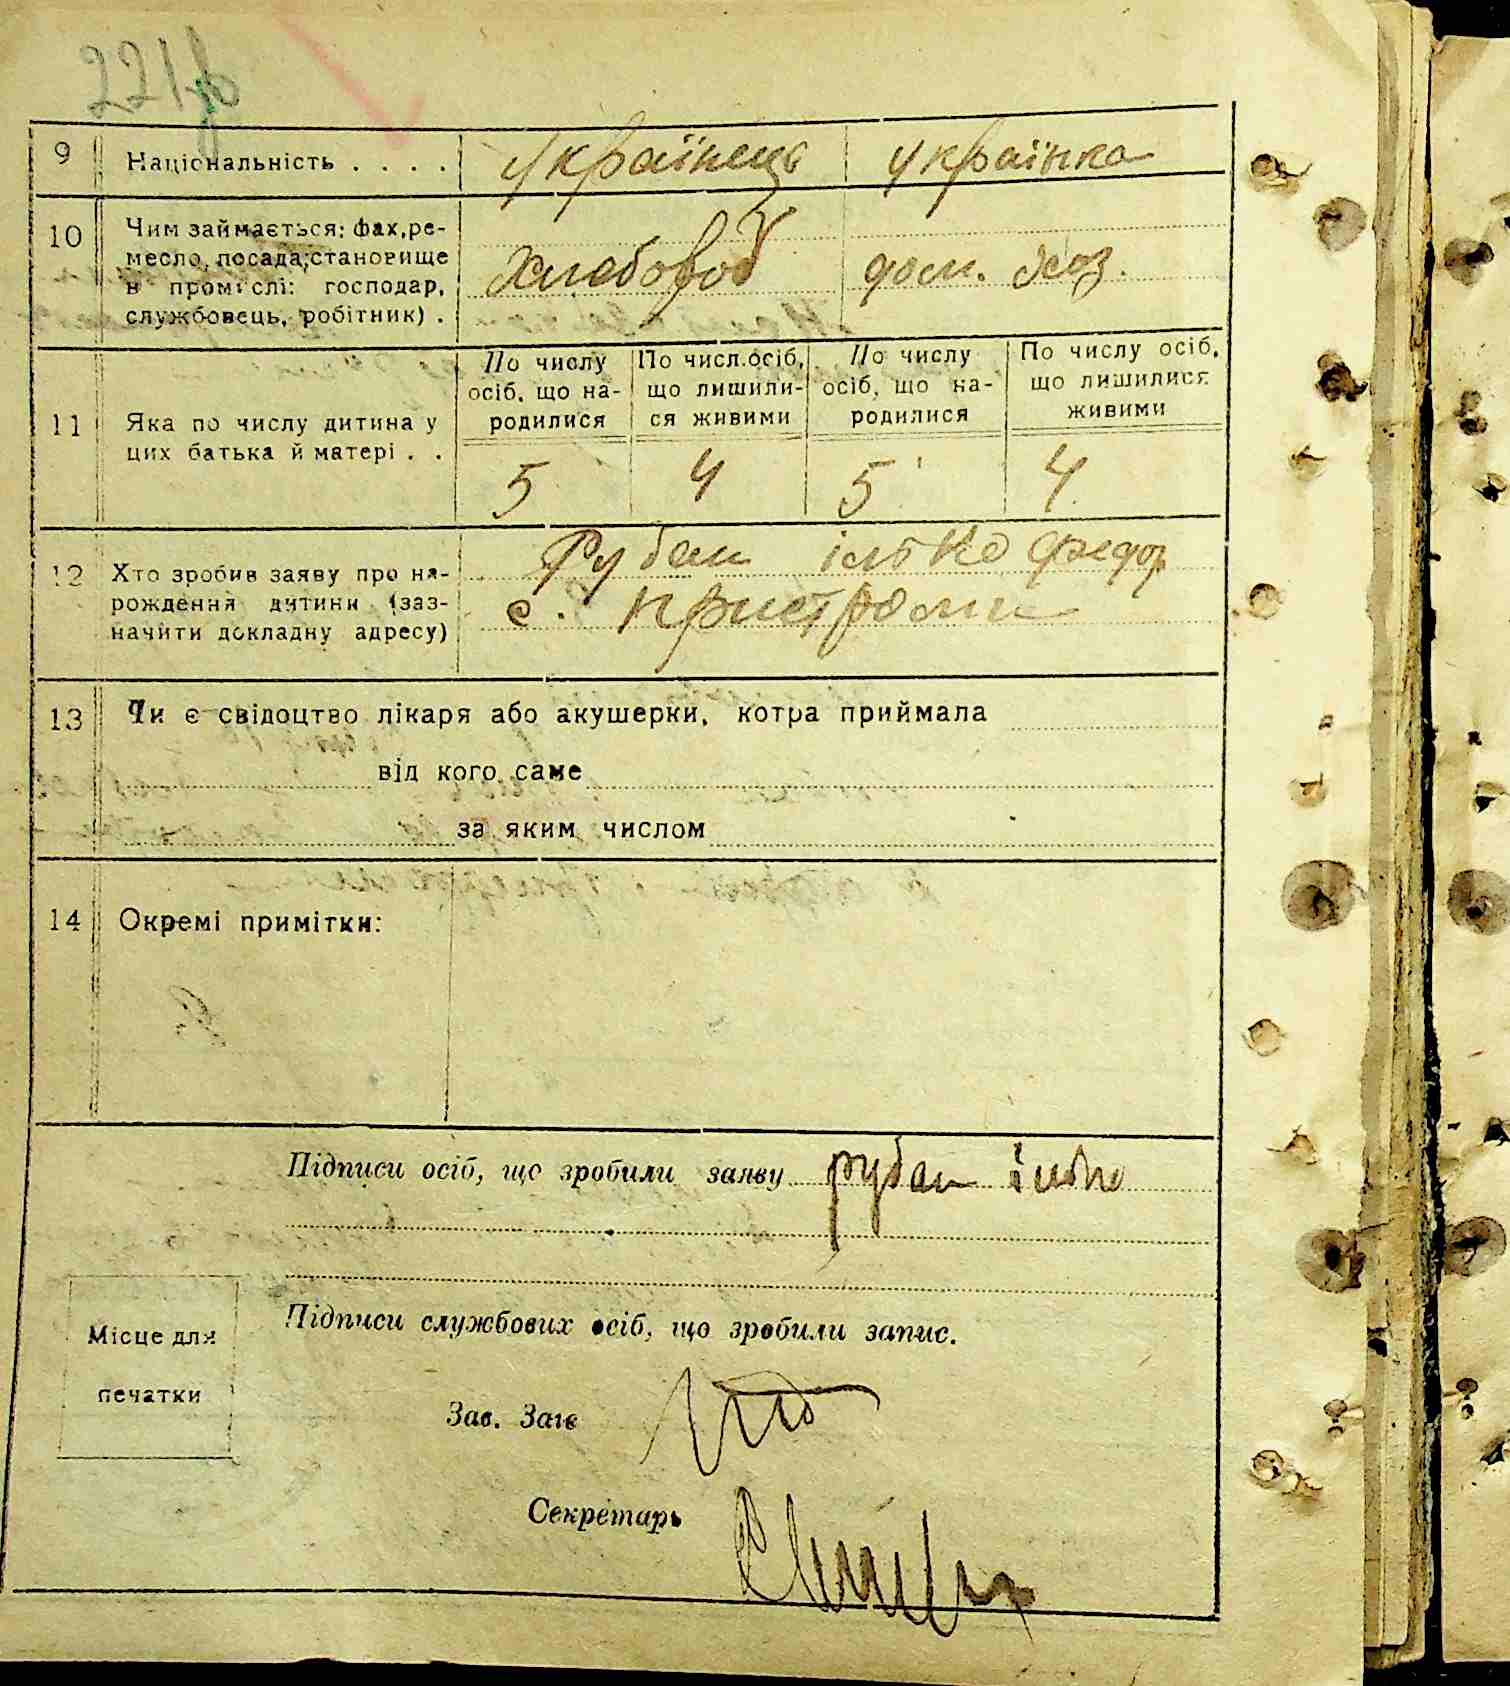 221
9 Національність . . . . Українець українка
10 Чим займається: фах, ре-
месло, посада; становище
в промислі: господар,
службовець, робітник) .
Хлебороб дом. хоз.
11 Яка по числу дитина у
цих батька й матері . .
По числу
осіб, що на-
родилися
По числ. осіб,
що лишили-
ся живими
По числу
осіб, що на-
родилися
По числу осіб,
що лишилися
живими
5 4 5 4
12 Хто зробив заяву про на-
рождення дитини (заз-
начити докладну адресу)
Рубан ілько Федор
с. Пристроми
13 Чи є свідоцтво лікаря або акушерки, котра приймала
від кого саме
за яким числом
14 Окремі примітки:
Підписи осіб, що зробили заяву рубан ілько
Підписи службових осіб, що зробили запис.
Місце для
печатки
Зав. Загс
Секретарь